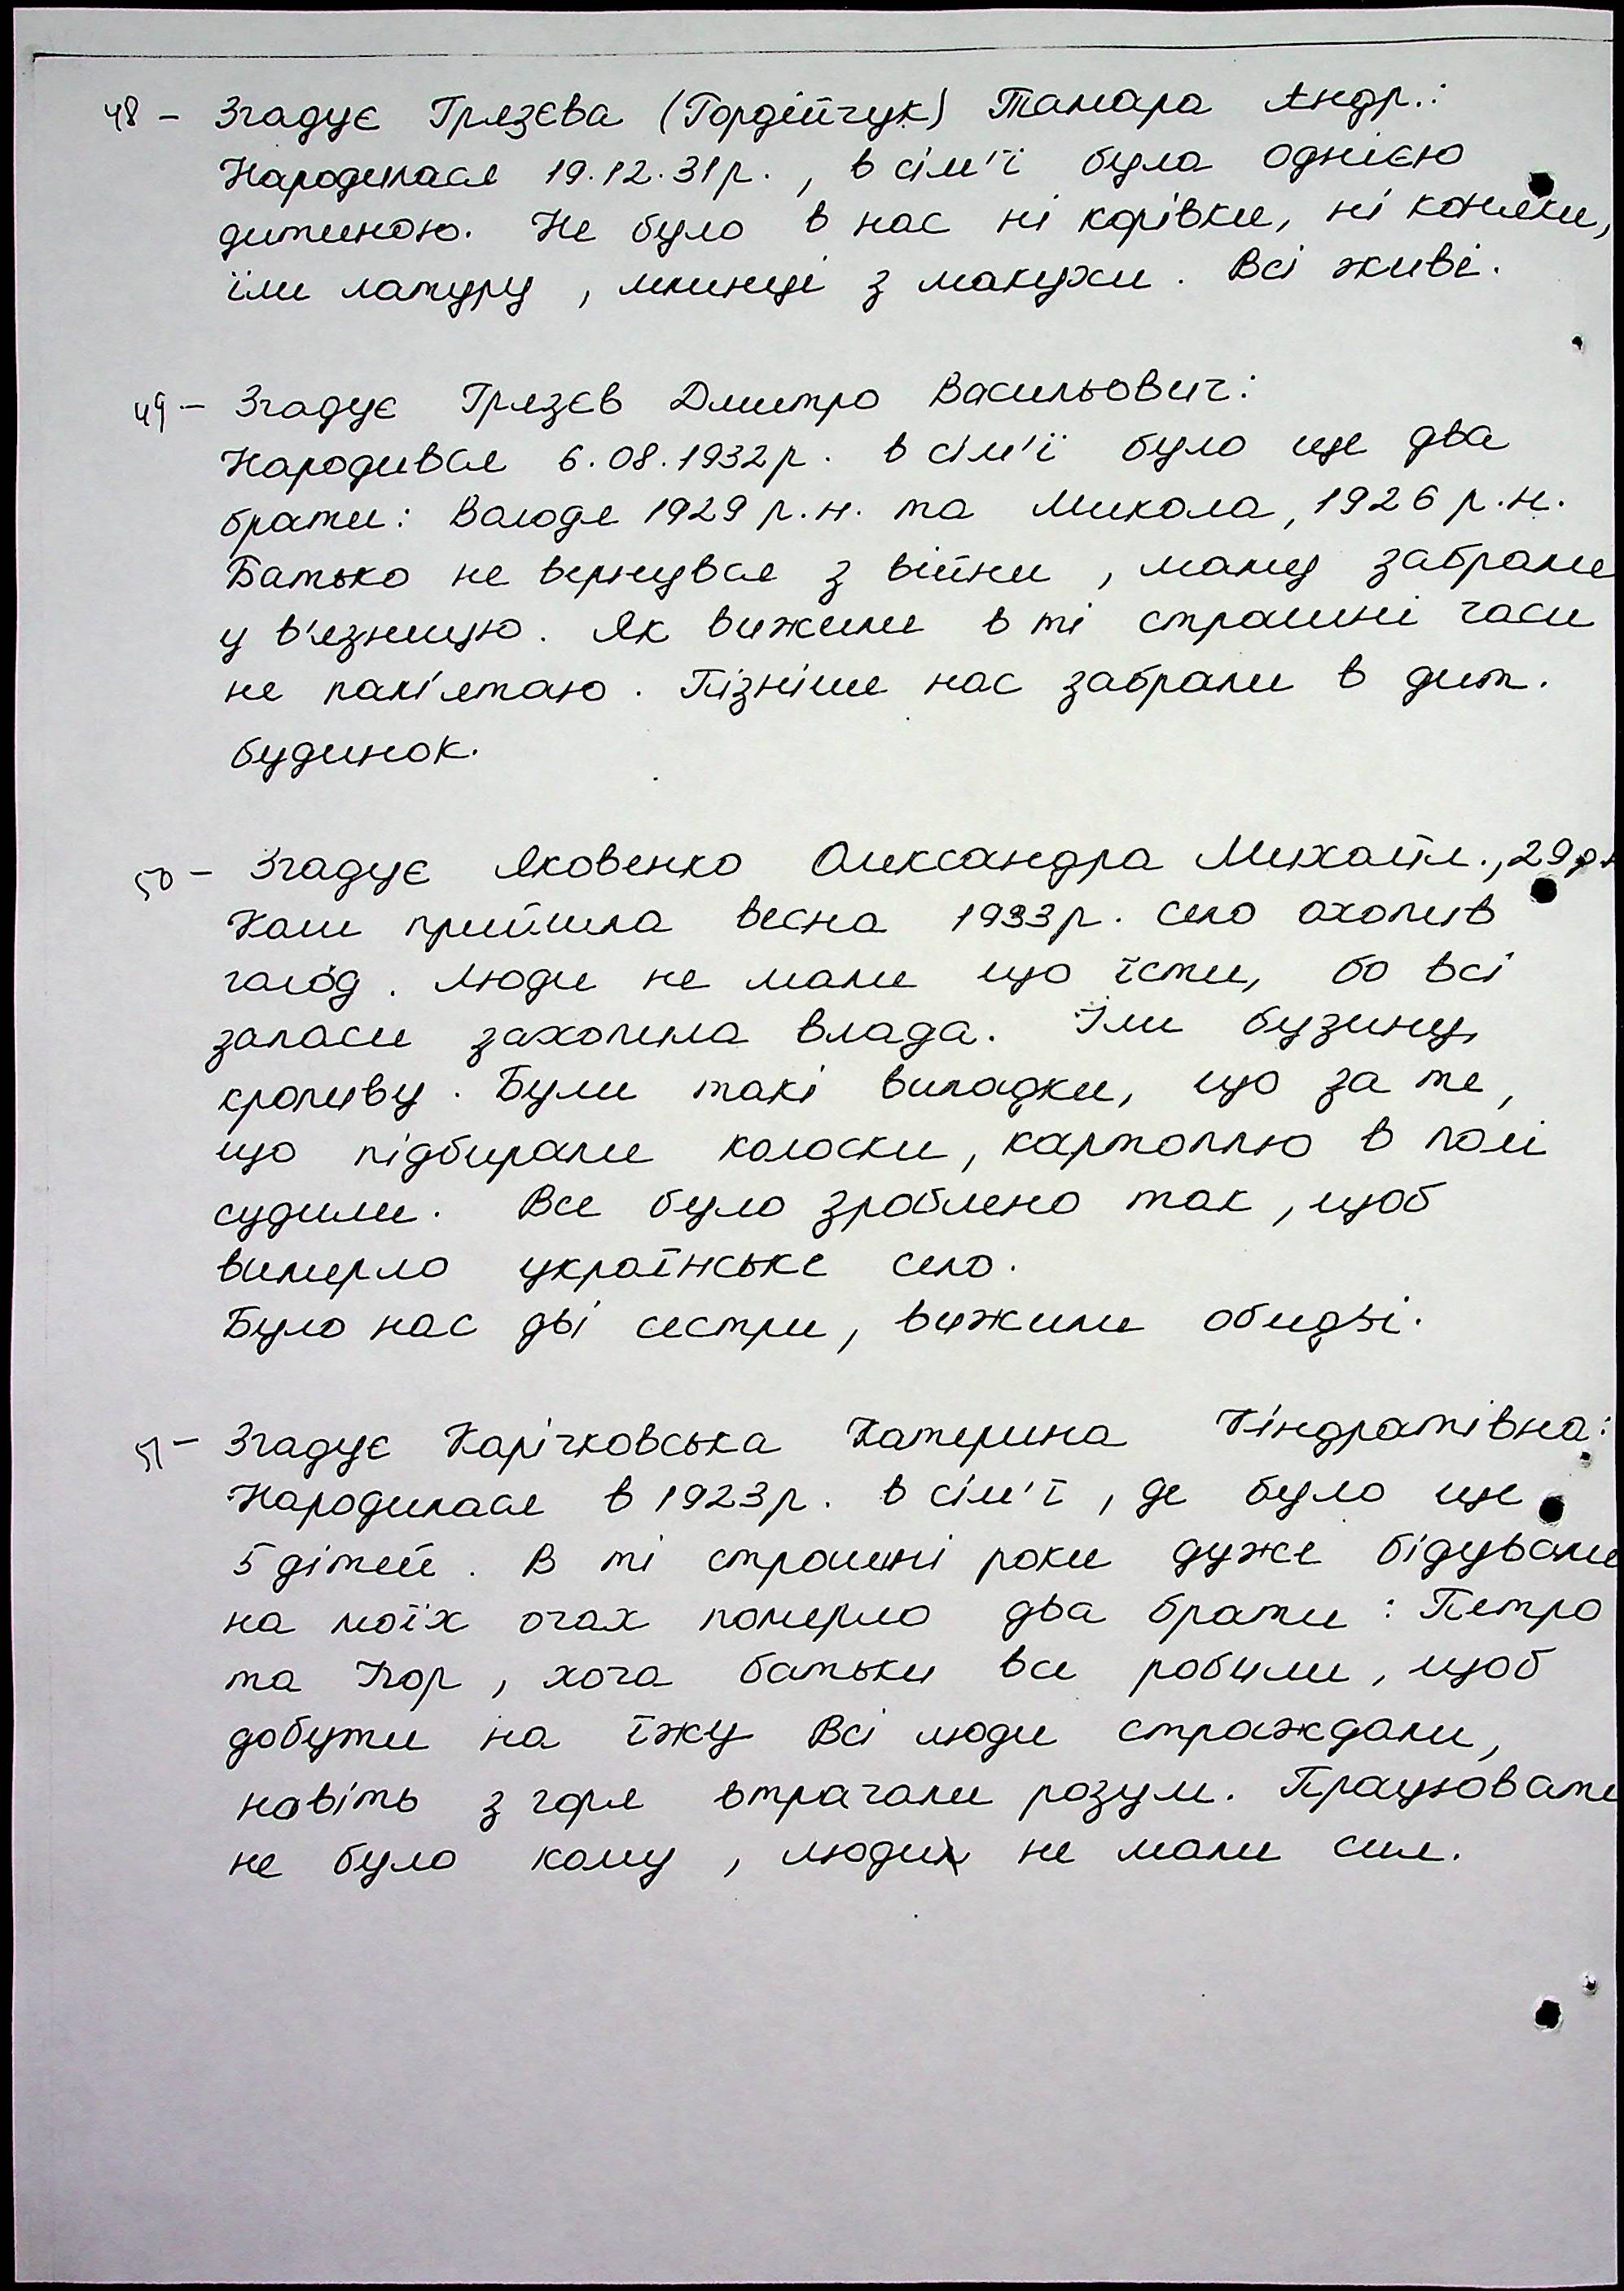 48 – Згадує Грязєва (Гордійчук) Тамара Андр.:
Народилася 19.12.31р., в сім'ї була однією
дитиною. Не було в нас ні корівки, ні коняки,
їли латуру, млинці з макухи. Всі живі.
49 – Згадує Грязєв Дмитро Васильович:
Народився 6.08.1932р. в сім'ї було ще два
брати: Володя 1929 р.н. та Микола, 1926 р.н.
Батько не вернувся з війни, маму забрали
у в'язницю. Як вижили в ті страшні часи
не пам'ятаю. Пізніше нас забрали в дит.
будинок.
50 – Згадує Яковенко Олександра Михайл., 29р.н
Коли прийшла весна 1933р. село охопив
голод. Люди не мали що їсти, бо всі
запаси захопила влада. Їли бузину,
кропиву. Були такі випадки, що за те,
що підбирали колоски, картоплю в полі
судили. Все було зроблено так, щоб
вимерло українське село.
Було нас дві сестри, вижили обидві.
51 – Згадує Карічковська Катерина Кіндратівна:
Народилася в 1923р. в сім'ї, де було ще
5 дітей. В ті страшні роки дуже бідували
на моїх очах померло два брати: Петро
та Ігор, хоча батьки все робили, щоб
добути на їжу Всі люди страждали,
навіть з горя втрачали розум. Працювати
не було кому, люди не мали сил.